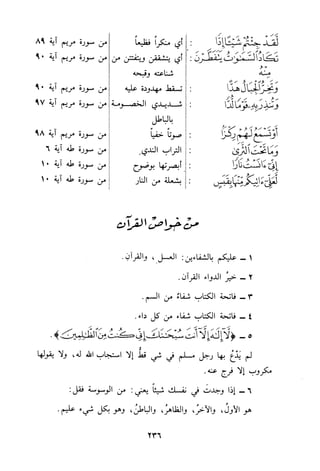 لَقَدْ جِئْتُمْ شَيْئًا إِدًّا : أي منكراً فظيعاً من سورة مريم آية ٨٩
تَكَادُ السَّمَٰوَاتُ يَتَفَطَّرْنَ : أي ينشققن ويتفتتن من من سورة مريم آية ٩٠
مِنْهُ شناعته وقبحه
وَتَخِرُّ الْجِبَالُ هَدًّا : تسقط مهدودة عليه من سورة مريم آية ٩٠
وَتُنْذِرَ بِهِ قَوْمًا لُدًّا : شديدي الخصومة من سورة مريم آية ٩٧
بالباطل
أَوْ تَسْمَعُ لَهُمْ رِكْزًا : صوتاً خفياً من سورة مريم آية ٩٨
وَمَا تَحْتَ الثَّرَىٰ : التراب الندي. من سورة طه آية ٦
إِنِّي آنَسْتُ نَارًا : أبصرتها بوضوح من سورة طه آية ١٠
لَعَلِّي آتِيكُمْ مِنْهَا بِقَبَسٍ : بشعلة من النار من سورة طه آية ١٠
من خواص القرآن
١ - عليكم بالشفاءين: العسل، والقرآن.
٢ - خيرُ الدواء القرآن.
٣ - فاتحة الكتاب شفاءٌ من السم.
٤ - فاتحة الكتاب شفاء من كل داء.
٥ - ﴿لَا إِلَٰهَ إِلَّا أَنْتَ سُبْحَانَكَ إِنِّي كُنْتُ مِنَ الظَّالِمِينَ﴾.
لم يَدْعُ بها رجل مسلم في شي قطُّ إلا استجاب الله له، ولا يقولها
مكروب إلا فرج عنه.
٦ - إذا وجدتَ في نفسك شيئاً يعني: من الوسوسة فقل:
هو الأولُ، والآخرُ، والظاهرُ، والباطنُ، وهو بكل شيء عليم.
٢٣٦